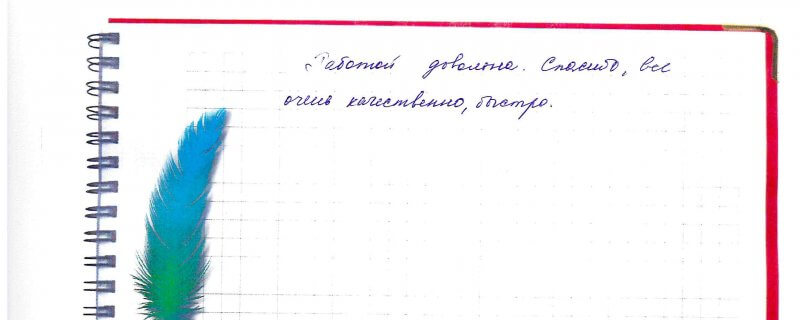 Работой довольна. Спасибо, все
очень качественно, быстро.